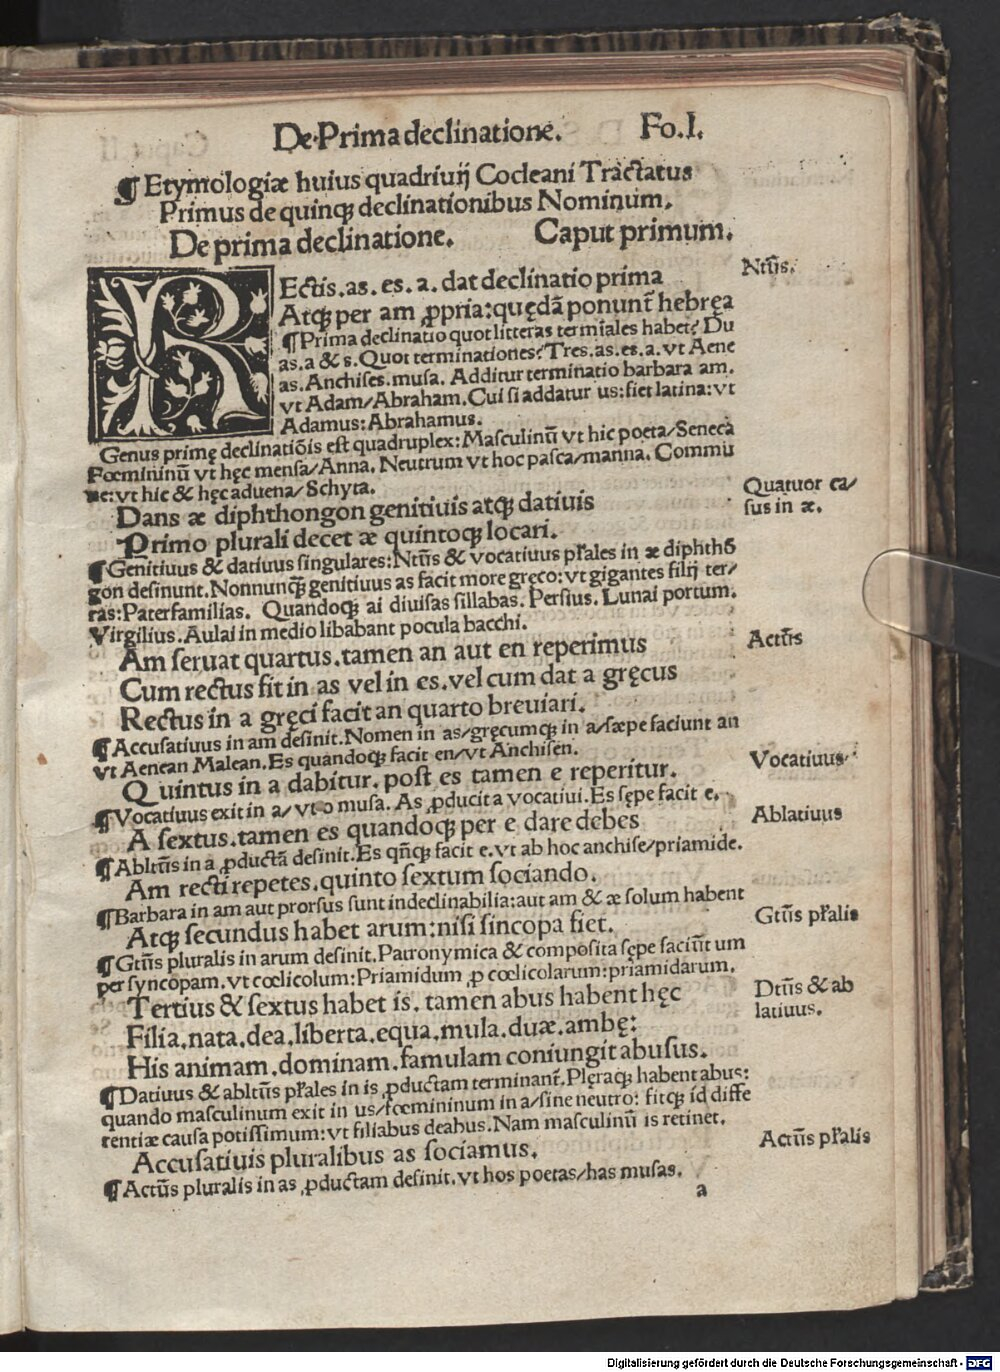 De Prima declinatione. Fo. I.
¶ Etymologiæ huius quadriuij Cocleani Tractatus
Primus de quinqꝫ declinationibus Nominum.
De prima declinatione. Caput primum.
REctis .as. es. a. dat declinatio prima
Ntūs.
Atqꝫ per am ꝓpria: quędā ponunt̄ hebręa
¶ Prima declinatio quot litteras termiales habet? Du
as. a & s. Quot terminationes? Tres. as. es. a. vt Aene
as. Anchises. musa. Additur terminatio barbara am.
vt Adam/Abraham. Cui si addatur us: fiet latina: vt
Adamus: Abrahamus.
Genus primę declinatiōis est quadruplex: Masculinū vt hic poeta/Seneca
Fœmininū vt hęc mensa/Anna. Neutrum vt hoc pasca/manna. Commu
ne: vt hic & hęc aduena/Schyta.
Dans æ diphthongon genitiuis atqꝫ datiuis
Quatuor ca/
sus in æ.
Primo plurali decet æ quintoqꝫ locari.
¶ Genitiuus & datiuus singulares: Ntūs & vocatiuus pɫales in æ diphthō
gon desinunt. Nonnunqꝫ̄ genitiuus as facit more gręco: vt gigantes filij ter/
ras: Paterfamilias. Quandoqꝫ ai diuisas sillabas. Persius. Lunai portum.
Virgilius. Aulai in medio libabant pocula bacchi.
Am seruat quartus. tamen an aut en reperimus
Actūs
Cum rectus fit in as vel in es. vel cum dat a gręcus
Rectus in a gręci facit an quarto breuiari.
¶ Accusatiuus in am desinit. Nomen in as/gręcumqꝫ in a/sæpe faciunt an
vt Aenean Malean. Es quandoqꝫ facit en/vt Anchisen.
Quintus in a dabitur. post es tamen e reperitur.
Vocatiuus
¶ Vocatiuus exit in a/vt o musa. As ꝓducit a vocatiui. Es sępe facit e.
A sextus. tamen es quandoqꝫ per e dare debes
Ablatiuus
¶ Abltūs in a ꝓductā desinit. Es qn̄qꝫ facit e. vt ab hoc anchise/priamide.
Am recti repetes. quinto sextum sociando.
¶ Barbara in am aut prorsus sunt indeclinabilia: aut am & æ solum habent
Atqꝫ secundus habet arum: nisi sincopa fiet.
Gtūs pɫalis
¶ Gtūs pluralis in arum desinit. Patronymica & composita sępe faciūt um
per syncopam. vt cœlicolum: Priamidum ꝓ cœlicolarum: priamidarum.
Tertius & sextus habet is. tamen abus habent hęc
Dtūs & ab
latiuus.
Filia. nata. dea. liberta. equa. mula. duæ. ambę:
His animam. dominam. famulam coniungit abusus.
¶ Datiuus & abltūs pɫales in is ꝓductam terminant̄. Plęraqꝫ habent abus:
quando masculinum exit in us/fœmininum in a/sine neutro: fitqꝫ id diffe
rentiæ causa potissimum: vt filiabus deabus. Nam masculinū is retinet.
Accusatiuis pluralibus as sociamus.
Actūs pɫalis
¶ Actūs pluralis in as ꝓductam desinit. vt hos poetas/has musas.
a
Digitalisierung gefördert durch die Deutsche Forschungsgemeinschaft - DFG